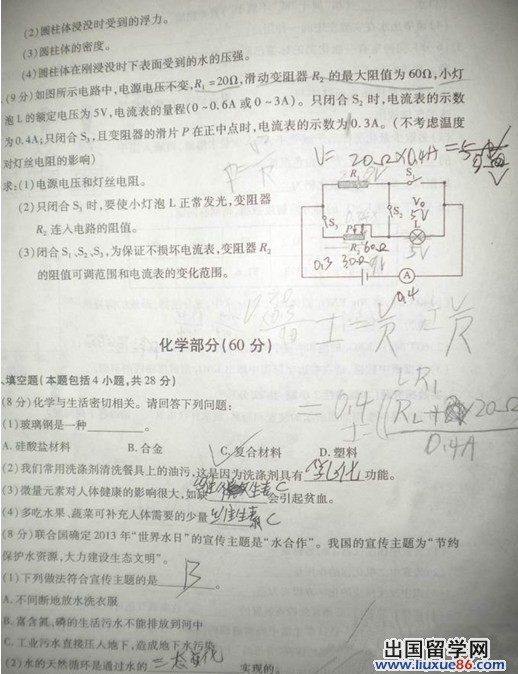 (2)圆柱体浸没时受到的浮力。
(3)圆柱体的密度。
(4)圆柱体在刚浸没时下表面受到的水的压强。
(9分)如图所示电路中,电源电压不变,R₁=20Ω,滑动变阻器R₂的最大阻值为60Ω,小灯
泡L的额定电压为5V,电流表的量程(0~0.6A或0~3A)。只闭合S₂时,电流表的示数
为0.4A;只闭合S₃,且变阻器的滑片P在正中点时,电流表的示数为0.3A。(不考虑温度
对灯丝电阻的影响)
V= 20Ω×0.4A=
求:(1)电源电压和灯丝电阻。
(2)只闭合S₃时,要使小灯泡L正常发光,变阻器
R₂连入电路的阻值。
(3)闭合S₁、S₂、S₃,为保证不损坏电流表,变阻器R₂
的阻值可调范围和电流表的变化范围。
R₁
S₁
S₃
S₂
V₀
5V
L
5V
P
R₂ 60Ω
0.3 30Ω 9V
A
0.4
I= V/R
化学部分(60分)
填空题(本题包括4小题,共28分)
(8分)化学与生活密切相关。请回答下列问题:
(1)玻璃钢是一种______。
A.硅酸盐材料 B.合金 C.复合材料 D.塑料
(2)我们常用洗涤剂清洗餐具上的油污,这是因为洗涤剂具有 乳化 功能。
(3)微量元素对人体健康的影响很大,如缺 维生素C 会引起贫血。
(4)多吃水果、蔬菜可补充人体需要的少量 维生素C 。
(8分)联合国确定2013年“世界水日”的宣传主题是“水合作”。我国的宣传主题为“节约
保护水资源,大力建设生态文明”。
(1)下列做法符合宣传主题的是 B 。
A.不间断地放水洗衣服
B.富含氮、磷的生活污水不能排放到河中
C.工业污水直接压入地下,造成地下水污染
(2)水的天然循环是通过水的 三态变化 实现的。
出国留学网
www.liuxue86.com